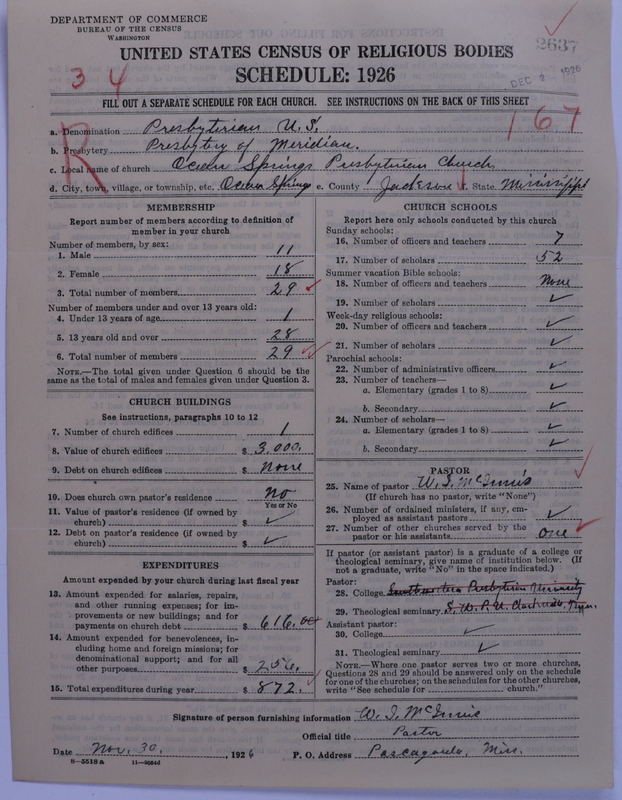 DEPARTMENT OF COMMERCE
BUREAU OF THE CENSUS
WASHINGTON
2637
DEC 2 1926
UNITED STATES CENSUS OF RELIGIOUS BODIES
3 4
SCHEDULE: 1926
FILL OUT A SEPARATE SCHEDULE FOR EACH CHURCH. SEE INSTRUCTIONS ON THE BACK OF THIS SHEET
167
R
a. Denomination Presbyterian U.S.
b. Presbytery Presbytery of Meridian.
c. Local name of church Ocean Springs Presbyterian Church
d. City, town, village, or township, etc. Ocean Springs e. County Jackson f. State Mississippi
MEMBERSHIP
Report number of members according to definition of
member in your church
Number of members, by sex:
1. Male 11
2. Female 18
3. Total number of members 29
Number of members under and over 13 years old:
4. Under 13 years of age 1
5. 13 years old and over 28
6. Total number of members 29
NOTE.—The total given under Question 6 should be the
same as the total of males and females given under Question 3.
CHURCH BUILDINGS
See instructions, paragraphs 10 to 12
7. Number of church edifices 1
8. Value of church edifices $ 3,000.
9. Debt on church edifices $ None
10. Does church own pastor's residence No
Yes or No
11. Value of pastor's residence (if owned by
church) $ ✓
12. Debt on pastor's residence (if owned by
church) $ ✓
EXPENDITURES
Amount expended by your church during last fiscal year
13. Amount expended for salaries, repairs,
and other running expenses; for im-
provements or new buildings; and for
payments on church debt $ 616.00
14. Amount expended for benevolences, in-
cluding home and foreign missions; for
denominational support; and for all
other purposes $ 256.
15. Total expenditures during year $ 872.
CHURCH SCHOOLS
Report here only schools conducted by this church
Sunday schools:
16. Number of officers and teachers 7
17. Number of scholars 52
Summer vacation Bible schools:
18. Number of officers and teachers None
19. Number of scholars ✓
Week-day religious schools:
20. Number of officers and teachers ✓
21. Number of scholars ✓
Parochial schools:
22. Number of administrative officers ✓
23. Number of teachers—
a. Elementary (grades 1 to 8) ✓
b. Secondary ✓
24. Number of scholars—
a. Elementary (grades 1 to 8) ✓
b. Secondary ✓
PASTOR
25. Name of pastor W. I. McInnis
(If church has no pastor, write "None")
26. Number of ordained ministers, if any, em-
ployed as assistant pastors ✓
27. Number of other churches served by the
pastor or his assistants one
If pastor (or assistant pastor) is a graduate of a college or
theological seminary, give name of institution below. (If
not a graduate, write "No" in the space indicated.)
Pastor:
28. College Southwestern Presbyterian University
29. Theological seminary S. W. P. U. Clarksville, Tenn.
Assistant pastor:
30. College ✓
31. Theological seminary ✓
NOTE.—Where one pastor serves two or more churches,
Questions 28 and 29 should be answered only on the schedule
for one of the churches; on the schedules for the other churches,
write "See schedule for church."
Signature of person furnishing information W. I. McInnis
Official title Pastor
Date Nov. 30, 1926 P. O. Address Pascagoula, Miss.
8—5518a 11—9664d